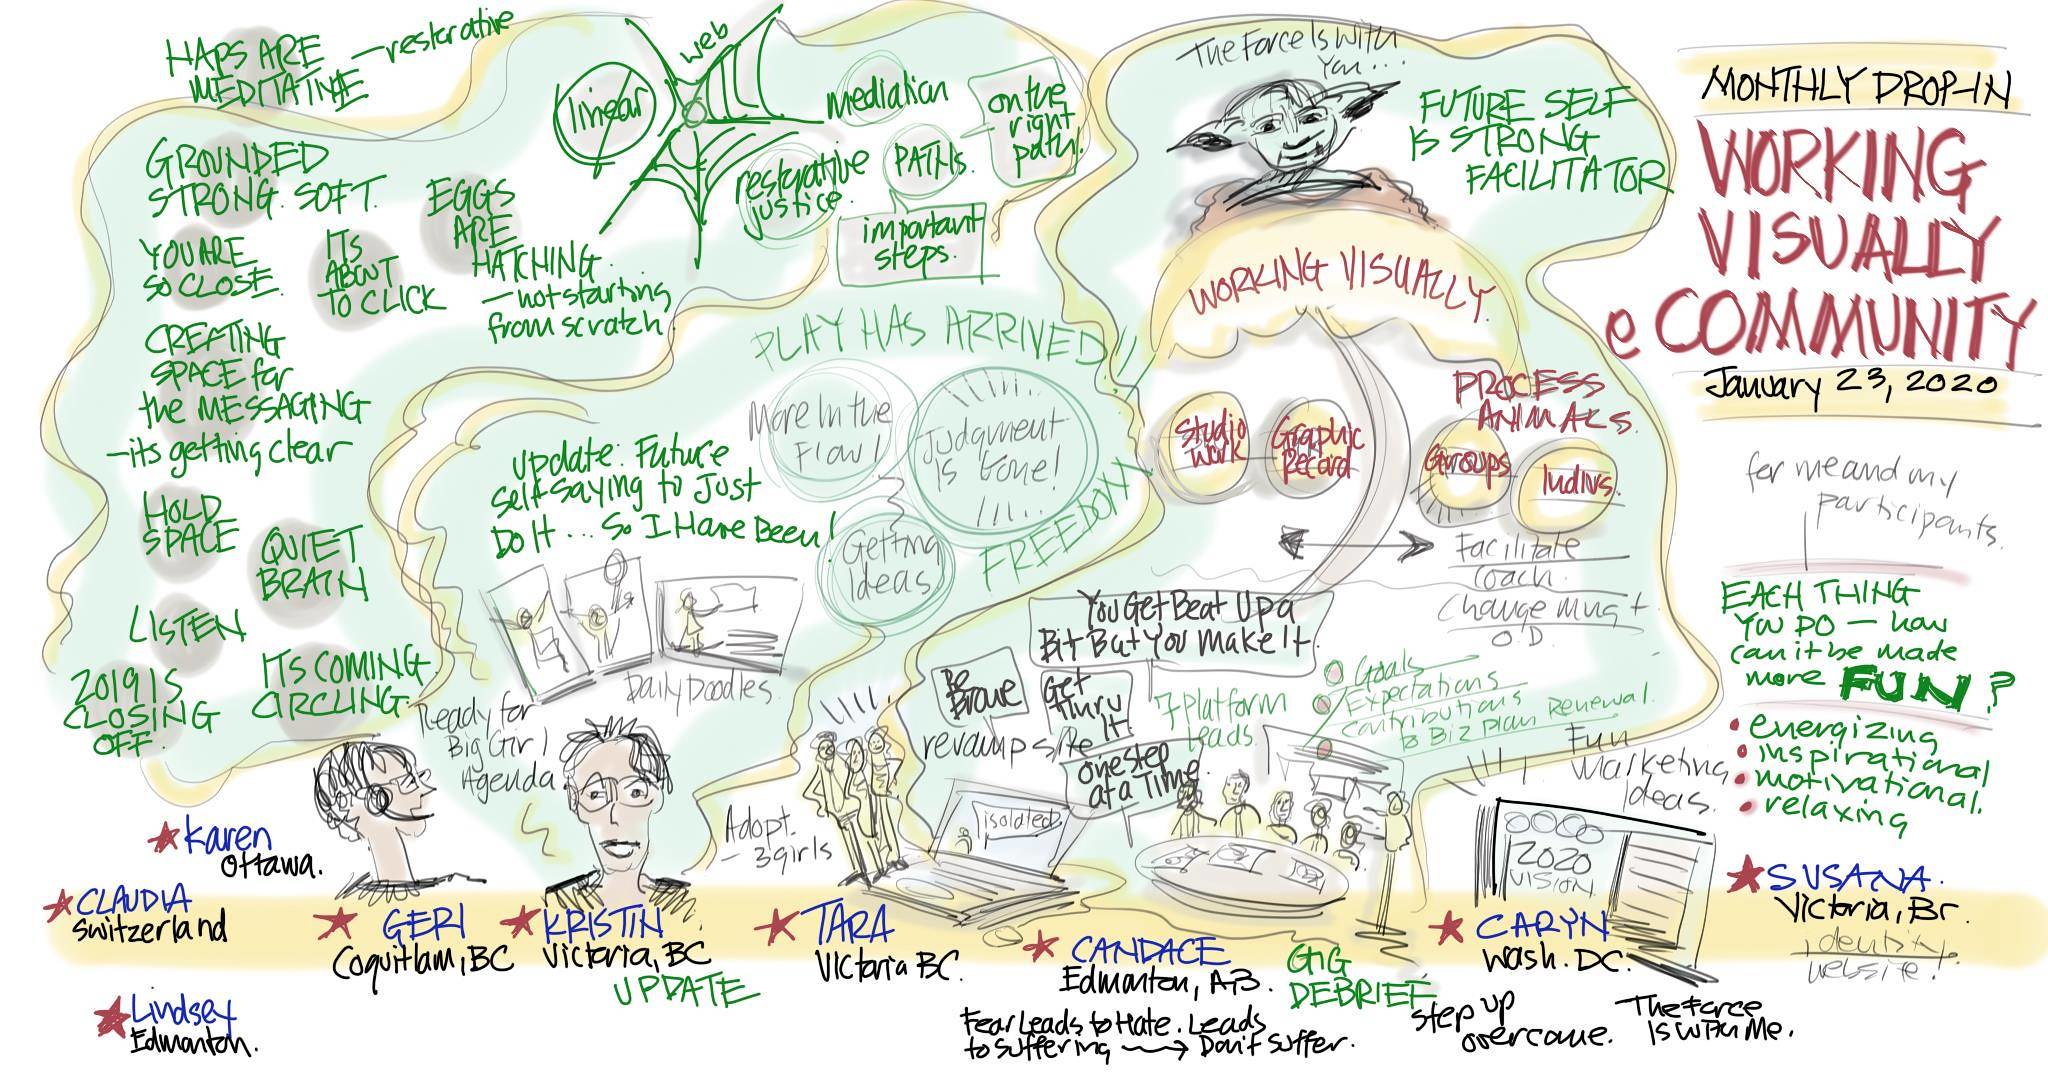 HAPS ARE
MEDITATIVE
— restorative
GROUNDED
STRONG. SOFT.
YOU ARE
SO CLOSE.
ITS
ABOUT
TO CLICK
EGGS
ARE
HATCHING.
— not starting
from scratch.
CREATING
SPACE for
the MESSAGING
— its getting clear
HOLD
SPACE
QUIET
BRAIN
LISTEN
2019 IS
CLOSING
OFF.
ITS COMING.
CIRCLING.
linear
web
mediation
restorative
justice.
PATHS.
on the
right
path!
important
steps.
PLAY HAS ARRIVED!!
More In the
Flow!
Judgment
Is Gone!
Getting
Ideas
FREEDOM
update: Future
self saying to Just
Do It... So I Have Been!
Daily Doodles.
Ready for
Big Girl
Agenda.
The Force Is With
You...
FUTURE SELF
IS STRONG
FACILITATOR
WORKING VISUALLY.
Studio
Work
Graphic
Record
PROCESS
ANIMALS.
Groups
Indivs.
Facilitate
Coach.
Change Mng +
O.D.
You Get Beat Up a
Bit But You Make It.
Be
Brave
Get
Thru
It
revamp site
one step
at a Time.
7 Platform
Leads
Goals
Expectations
Contributions
to Biz Plan Renewal.
Adopt.
— 3 girls
isolated.
Fun
Marketing
Ideas.
2020
VISION
MONTHLY DROP-IN
WORKING
VISUALLY
e COMMUNITY
January 23, 2020
for me and my
participants.
EACH THING
YOU DO — how
can it be made
more FUN?
• energizing
• inspirational
• motivational.
• relaxing
Karen
Ottawa.
CLAUDIA
Switzerland
Lindsey
Edmonton.
GERI
Coquitlam, BC
KRISTIN
Victoria, BC
UPDATE
TARA
Victoria BC.
CANDACE
Edmonton, AB.
GIG
DEBRIEF
Fear Leads to Hate. Leads
to suffering → Don't Suffer.
CARYN
Wash. DC.
Step up
overcome.
The Force
Is With Me.
SUSANA.
Victoria, BC.
identity
website!